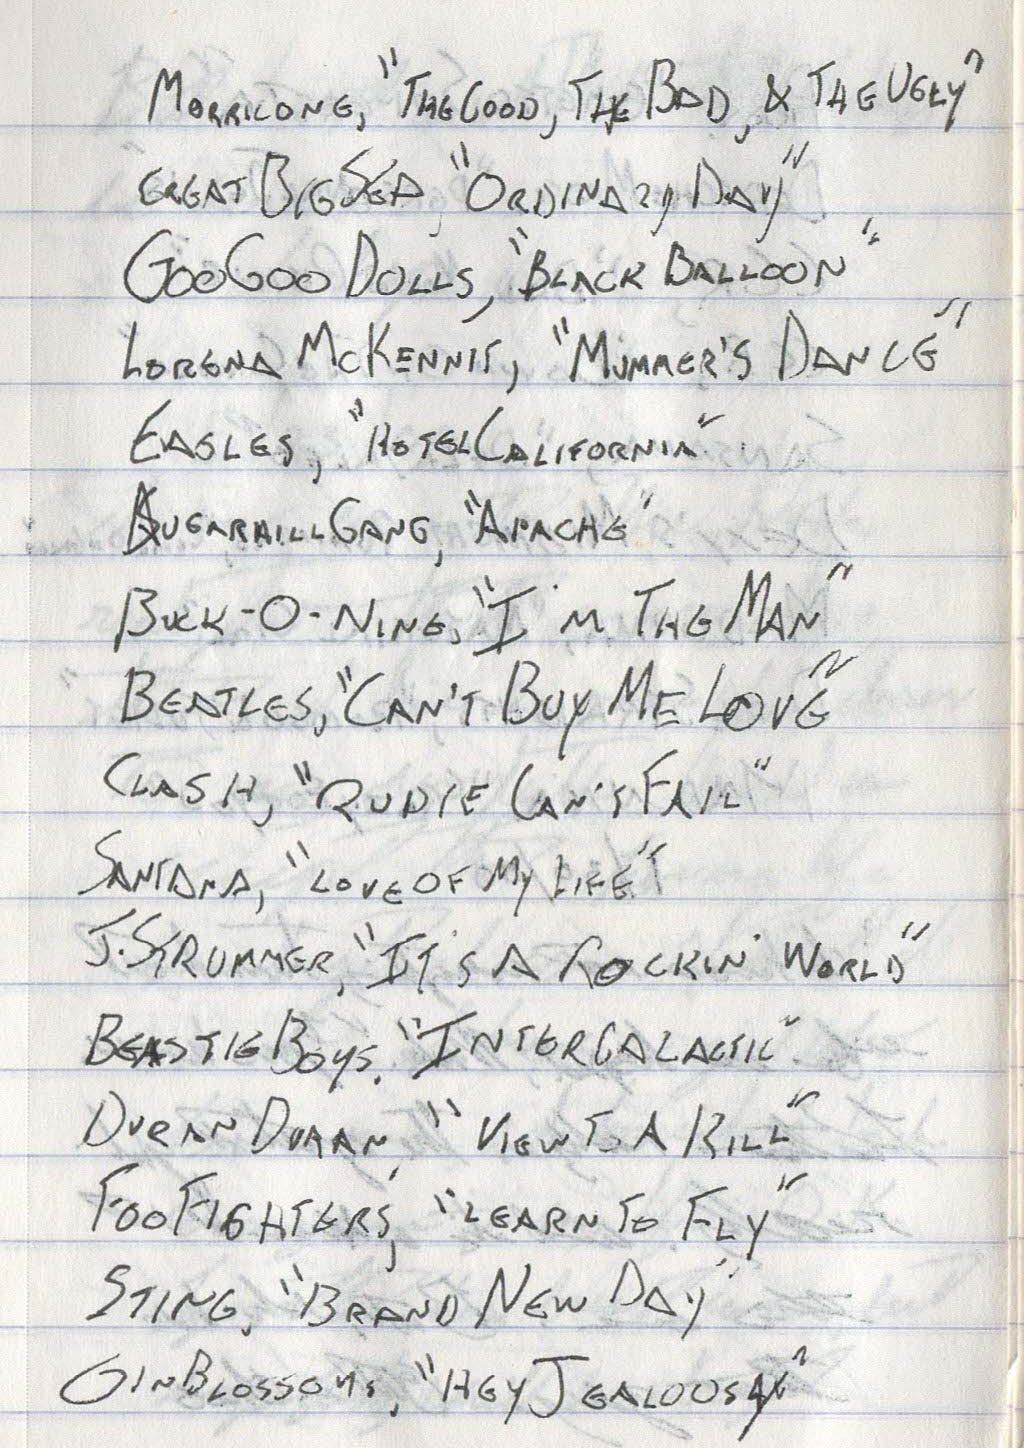 Morricone, "The Good, The Bad, & The Ugly"
Great Big Sea, "Ordinary Day"
Goo Goo Dolls, "Black Balloon"
Lorena McKennit, "Mummer's Dance"
Eagles, "Hotel California"
Sugarhill Gang, "Apache"
Buck-O-Nine, "I'm The Man"
Beatles, "Can't Buy Me Love"
Clash, "Rudie Can't Fail"
Santana, "Love of My Life"
J. Strummer, "It's A Rockin' World"
Beastie Boys, "Intergalactic"
Duran Duran, "View To A Kill"
Foo Fighters, "Learn to Fly"
Sting, "Brand New Day"
Gin Blossoms, "Hey Jealousy"